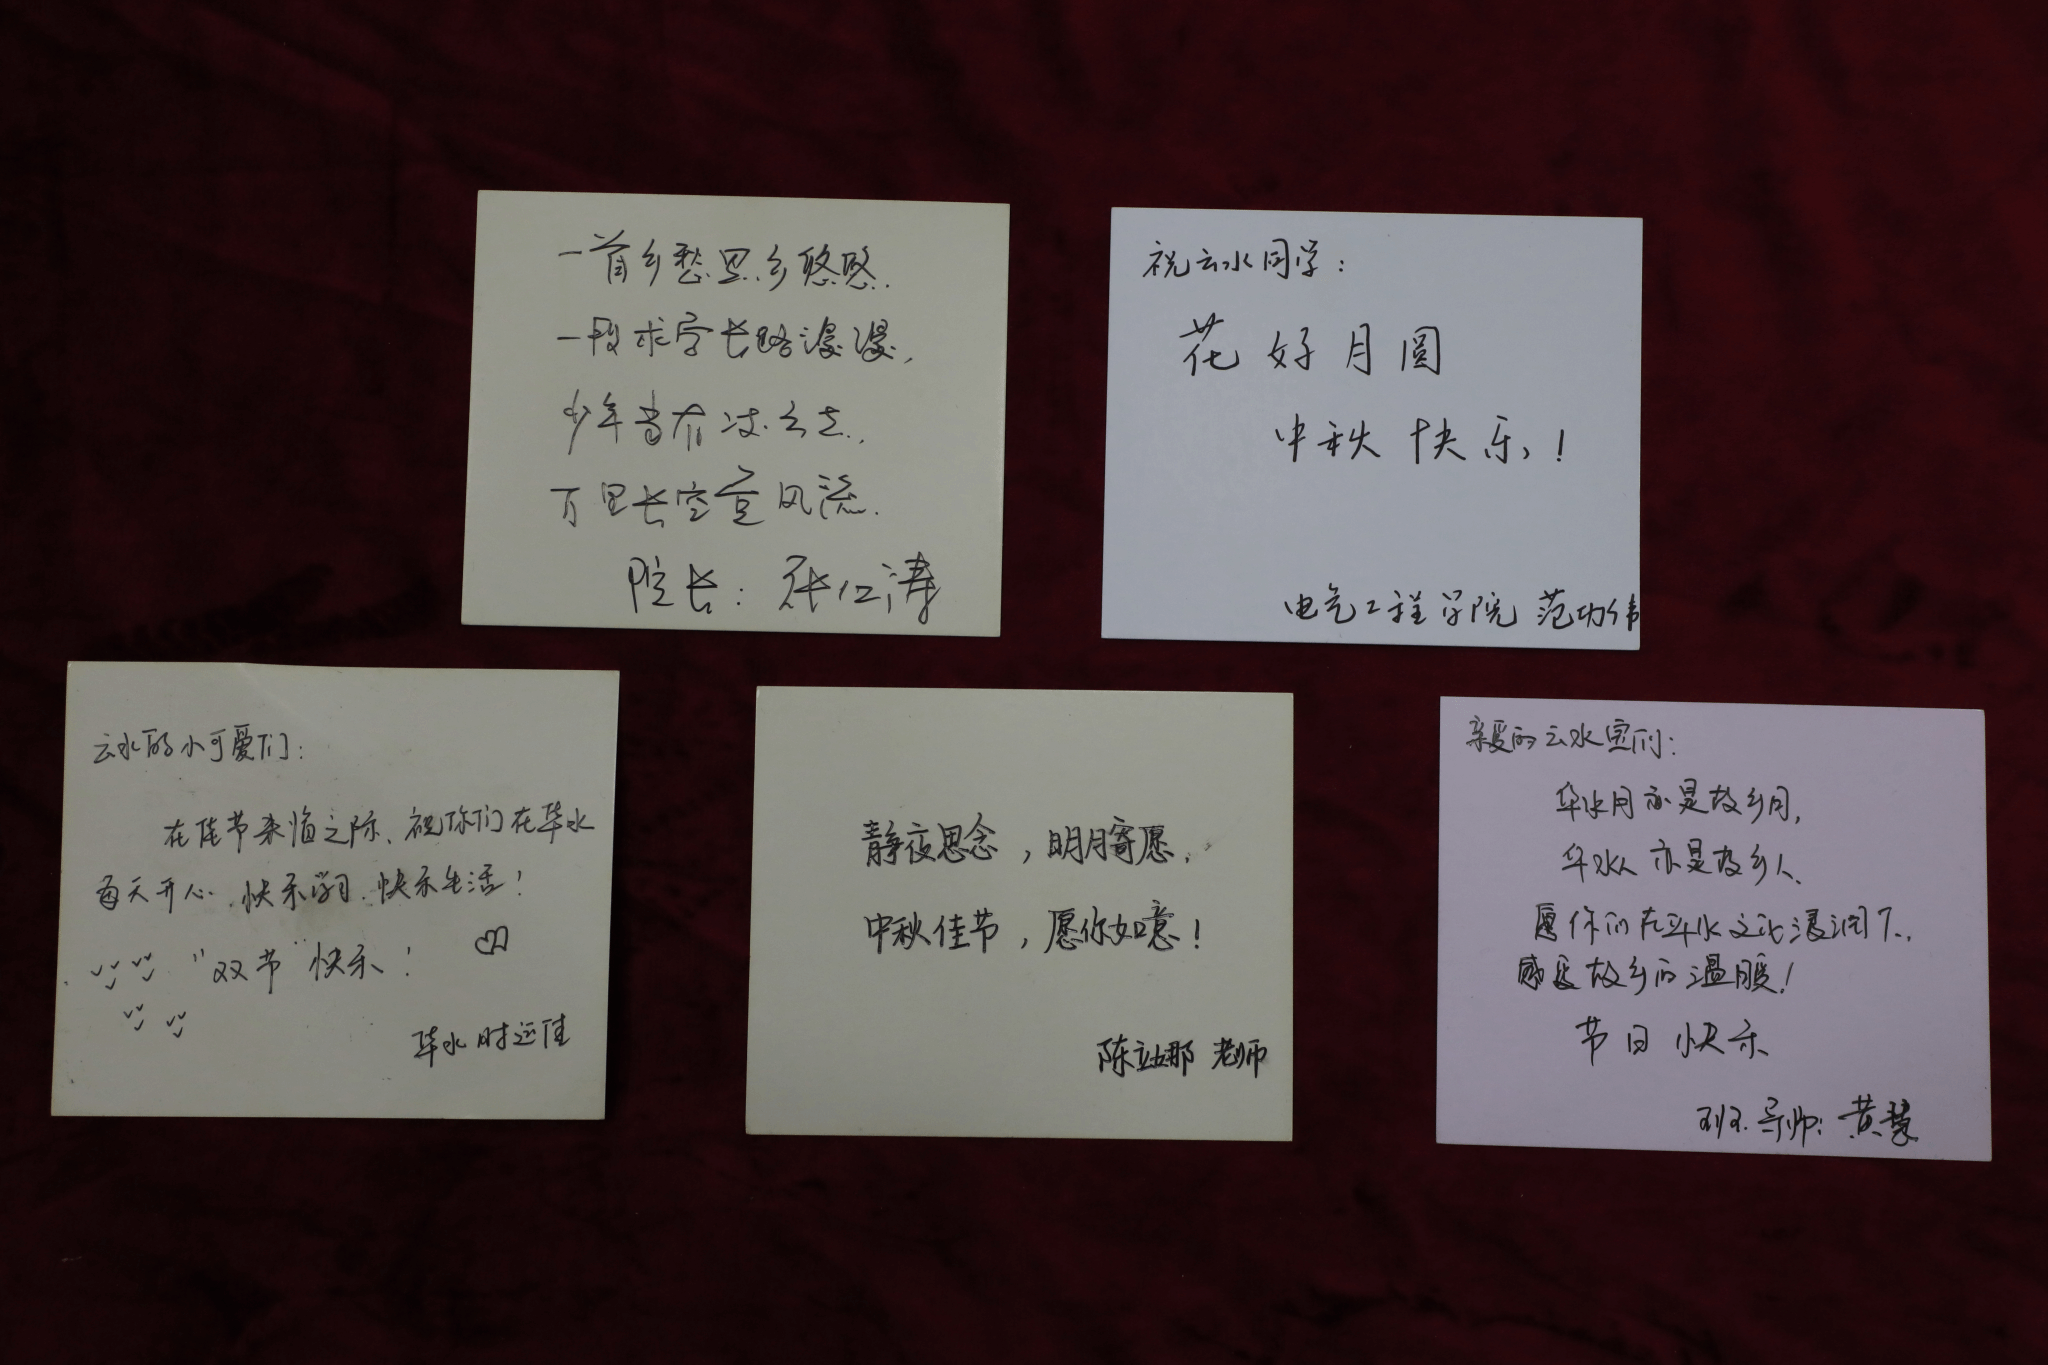 一首乡愁思乡悠悠.
一段求学长路漫漫,
少年当有凌云志.
万里长空竞风流.
院长: 张仁涛
祝云水同学:
花好月圆
中秋快乐!
电气工程学院 范功伟
云水的小可爱们:
在佳节来临之际、祝你们在华水
每天开心.快乐学习.快乐生活!
"双节"快乐!
华水时运佳
静夜思念,明月寄愿.
中秋佳节,愿你如意!
陈立娜 老师
亲爱的云水宝们:
华水月亦是故乡月,
华水人亦是故乡人.
愿你们在华水文化浸润下,
感受故乡的温暖!
节日快乐
班导师: 黄慧